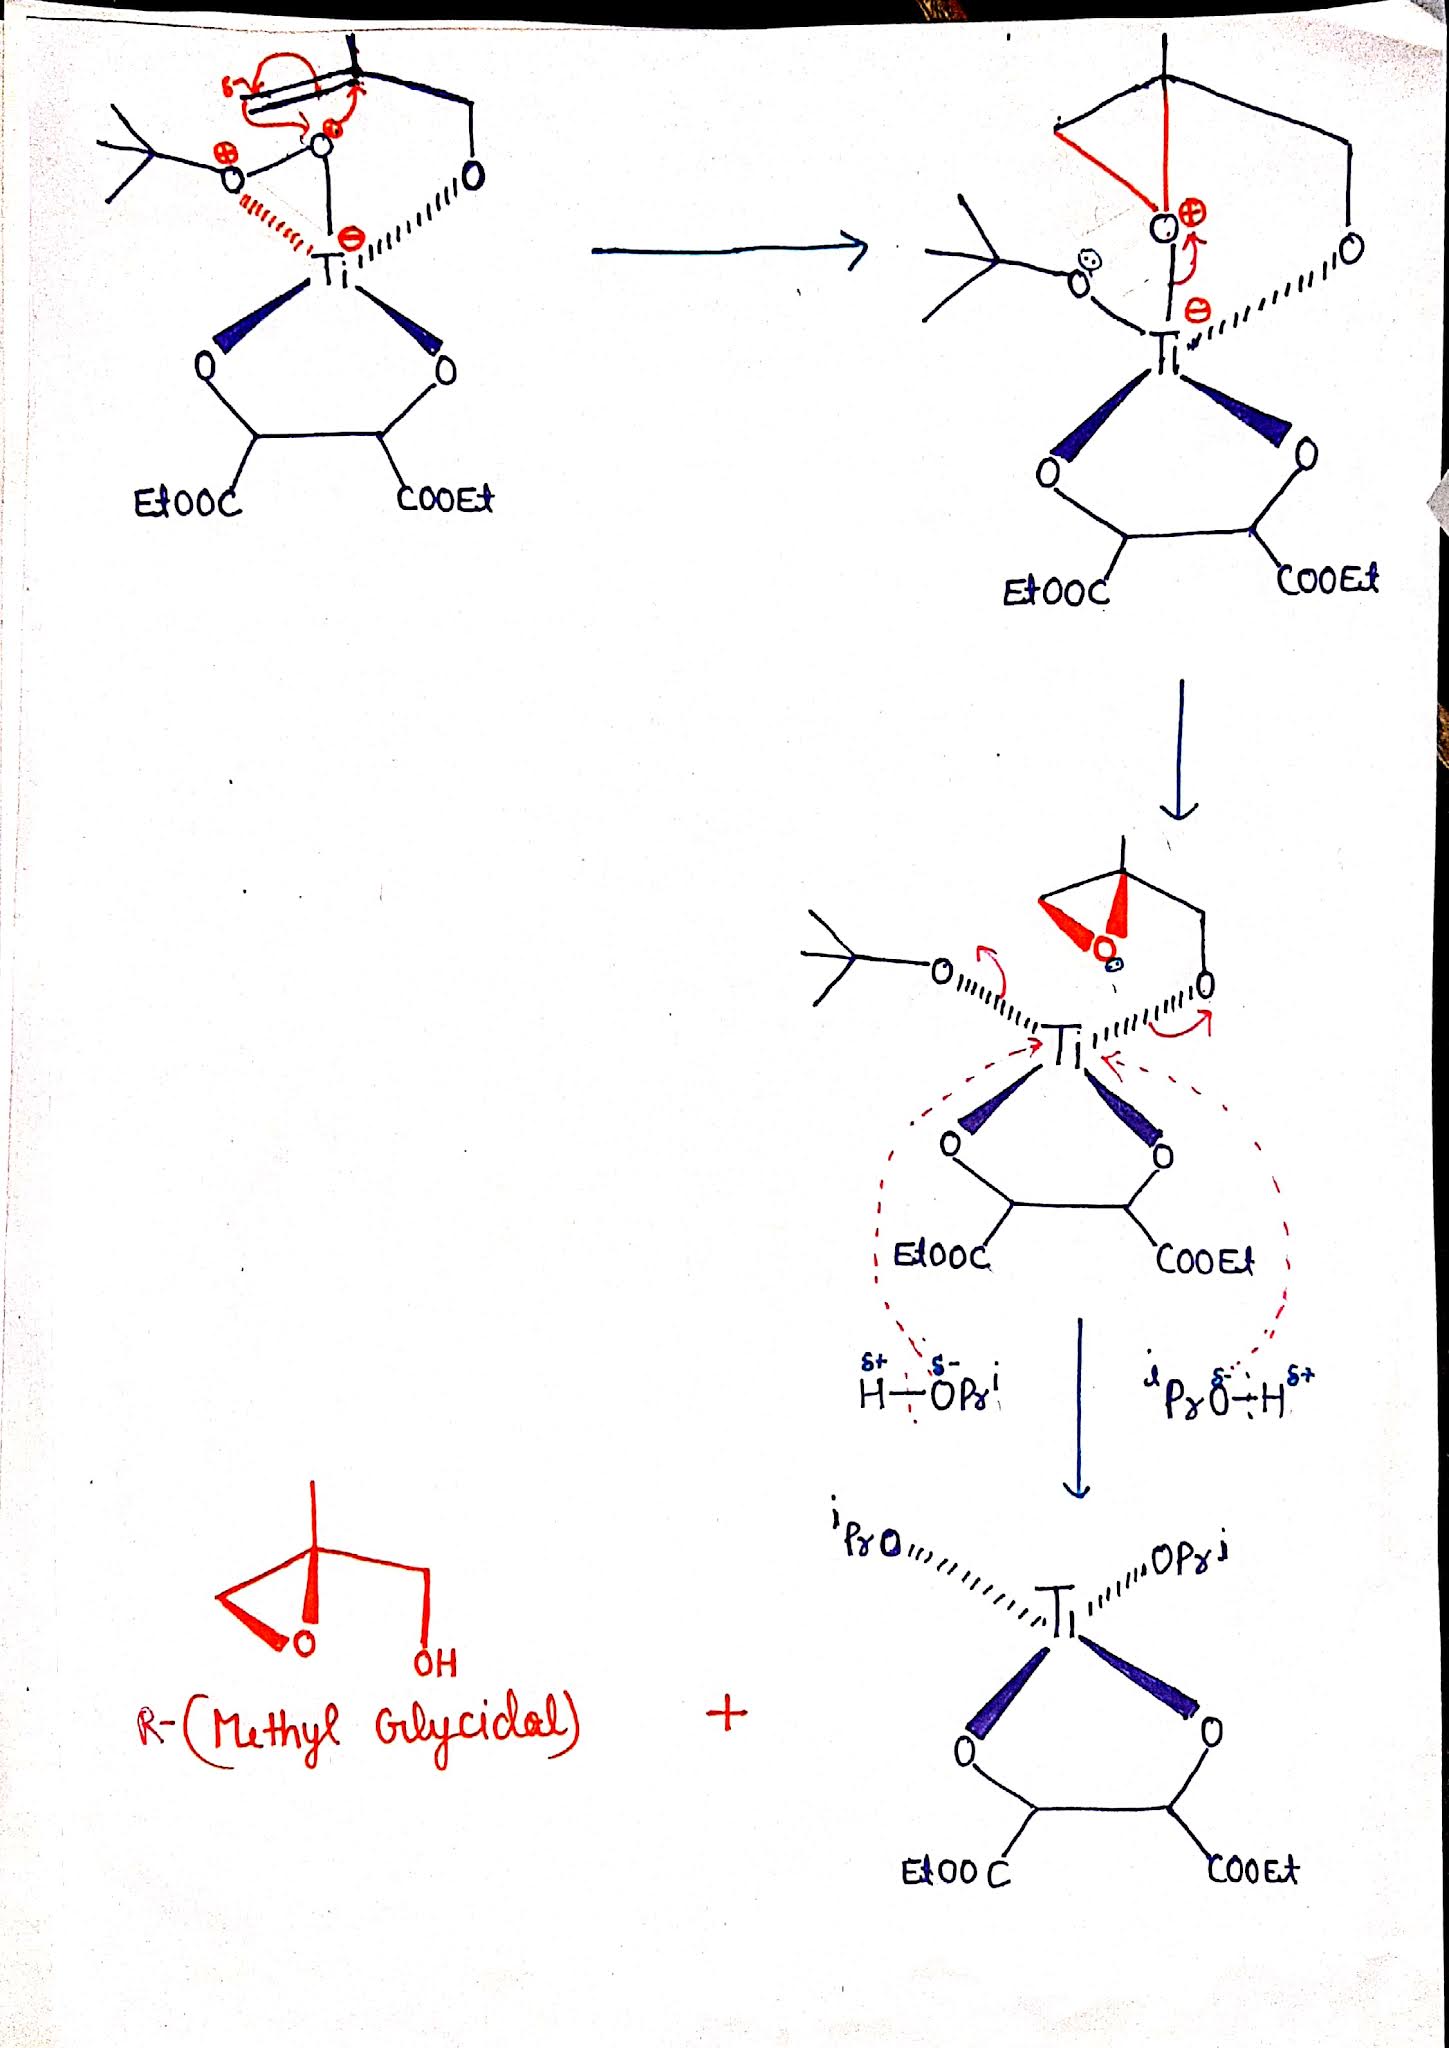 δ-
⊕ O O ⊕ O
Ti ⊖
O O
EtOOC COOEt
O O ⊕ O
Ti ⊖
O O
EtOOC COOEt
O O O
Ti
O O
EtOOC COOEt
δ+ δ- δ- δ+
H-OPrⁱ ⁱPrO-H
ⁱPrO OPrⁱ
Ti
O O
EtOOC COOEt
O OH
R-(Methyl Glycidol) +